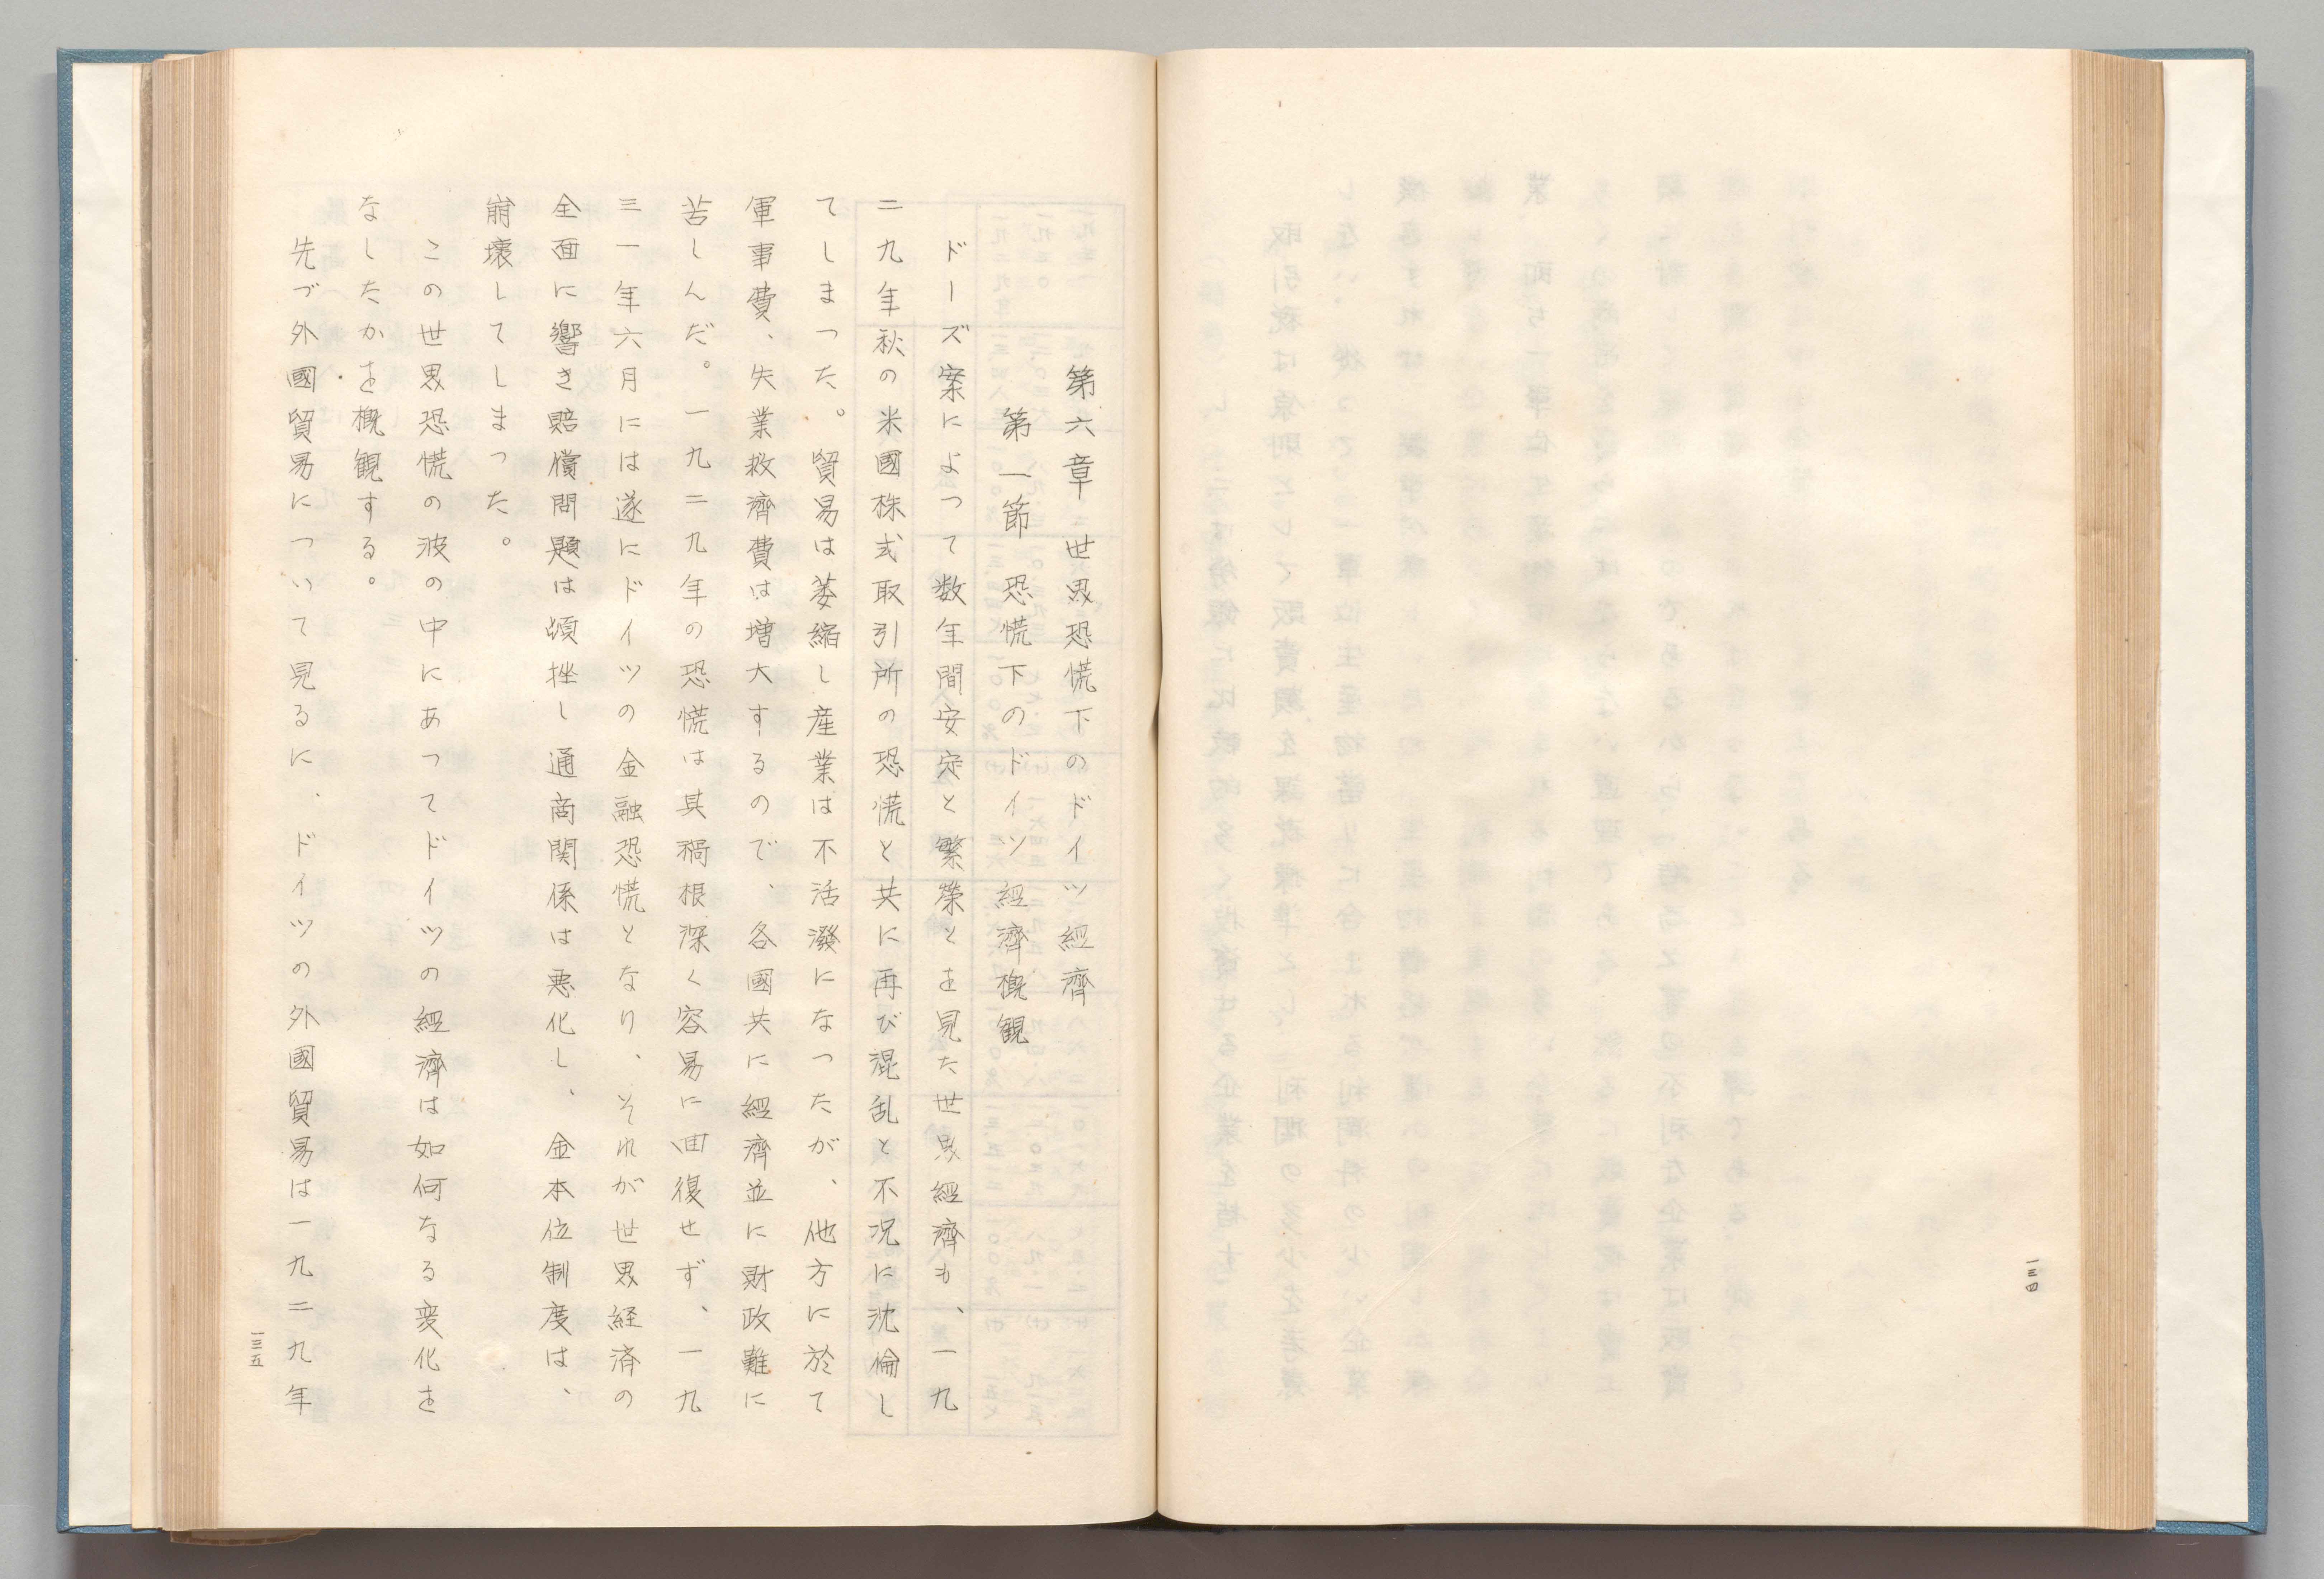 一三四
第六章　世界恐慌下のドイツ經濟
第一節　恐慌下のドイツ經濟概観
ドーズ案によつて数年間安定と繁榮とを見た世界經濟も、一九
二九年秋の米國株式取引所の恐慌と共に再び混乱と不況に沈倫し
てしまつた。貿易は萎縮し産業は不活潑になつたが、他方に於て
軍事費、失業救濟費は増大するので、各國共に經濟並に財政難に
苦しんだ。一九二九年の恐慌は其禍根深く容易に回復せず、一九
三一年六月には遂にドイツの金融恐慌となり、それが世界経済の
全面に響き賠償問題は頓挫し通商関係は悪化し、金本位制度は、
崩壊してしまつた。
この世界恐慌の波の中にあつてドイツの經濟は如何なる変化を
なしたかを概観する。
先づ外國貿易について見るに、ドイツの外國貿易は一九二九年
一三五